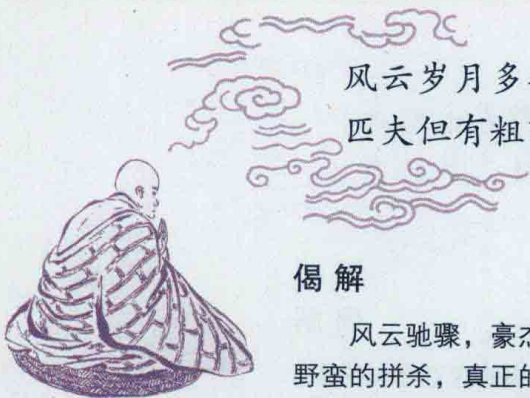 风云岁月多
匹夫但有粗
偈解
风云驰骤，豪杰
野蛮的拼杀，真正的